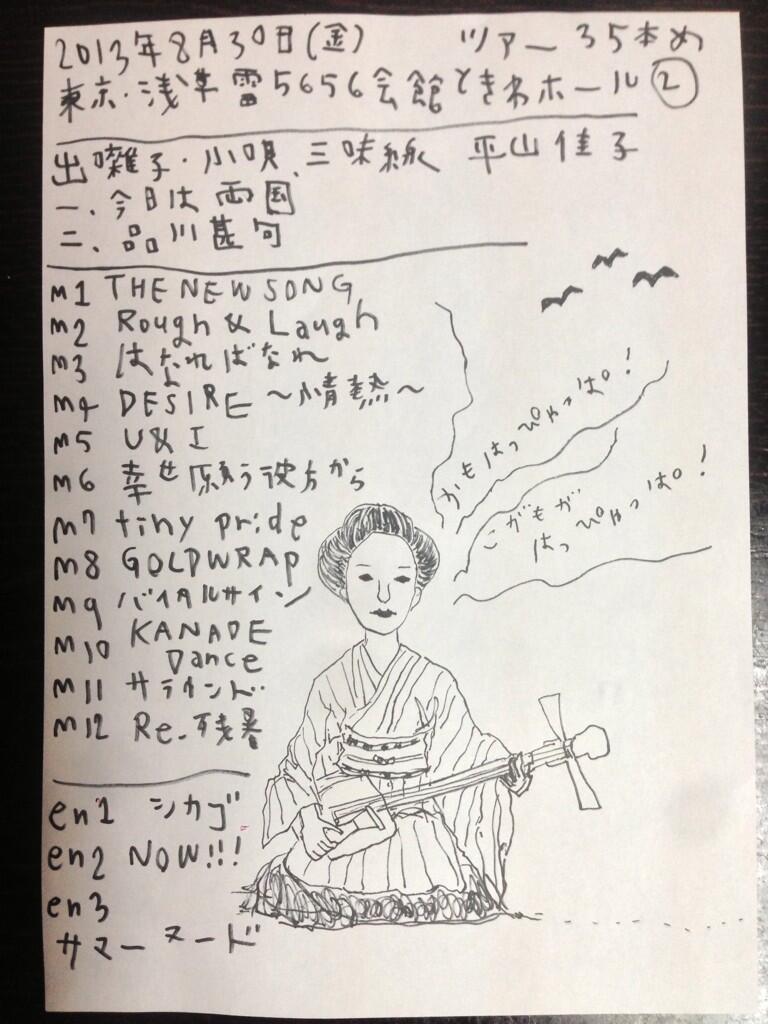 2013年8月30日(金) ツアー35本め
東京・浅草雷5656会館ときわホール②
出囃子・小唄、三味線 平山佳子
一、今日は両国
二、品川甚句
m1 THE NEW SONG
m2 Rough & Laugh
m3 はなればなれ
m4 DESIRE ～情熱～
m5 U&I
m6 幸せ願う彼方から
m7 tiny pride
m8 GOLDWRAP
m9 バイタルサイン
m10 KANADE
Dance
m11 サライント゛
m12 Re-残暑
en1 シカゴ
en2 NOW!!!
en3
サマーヌード
かもはっぴゃっぱ!
こがもが
はっぴゃっぱ!